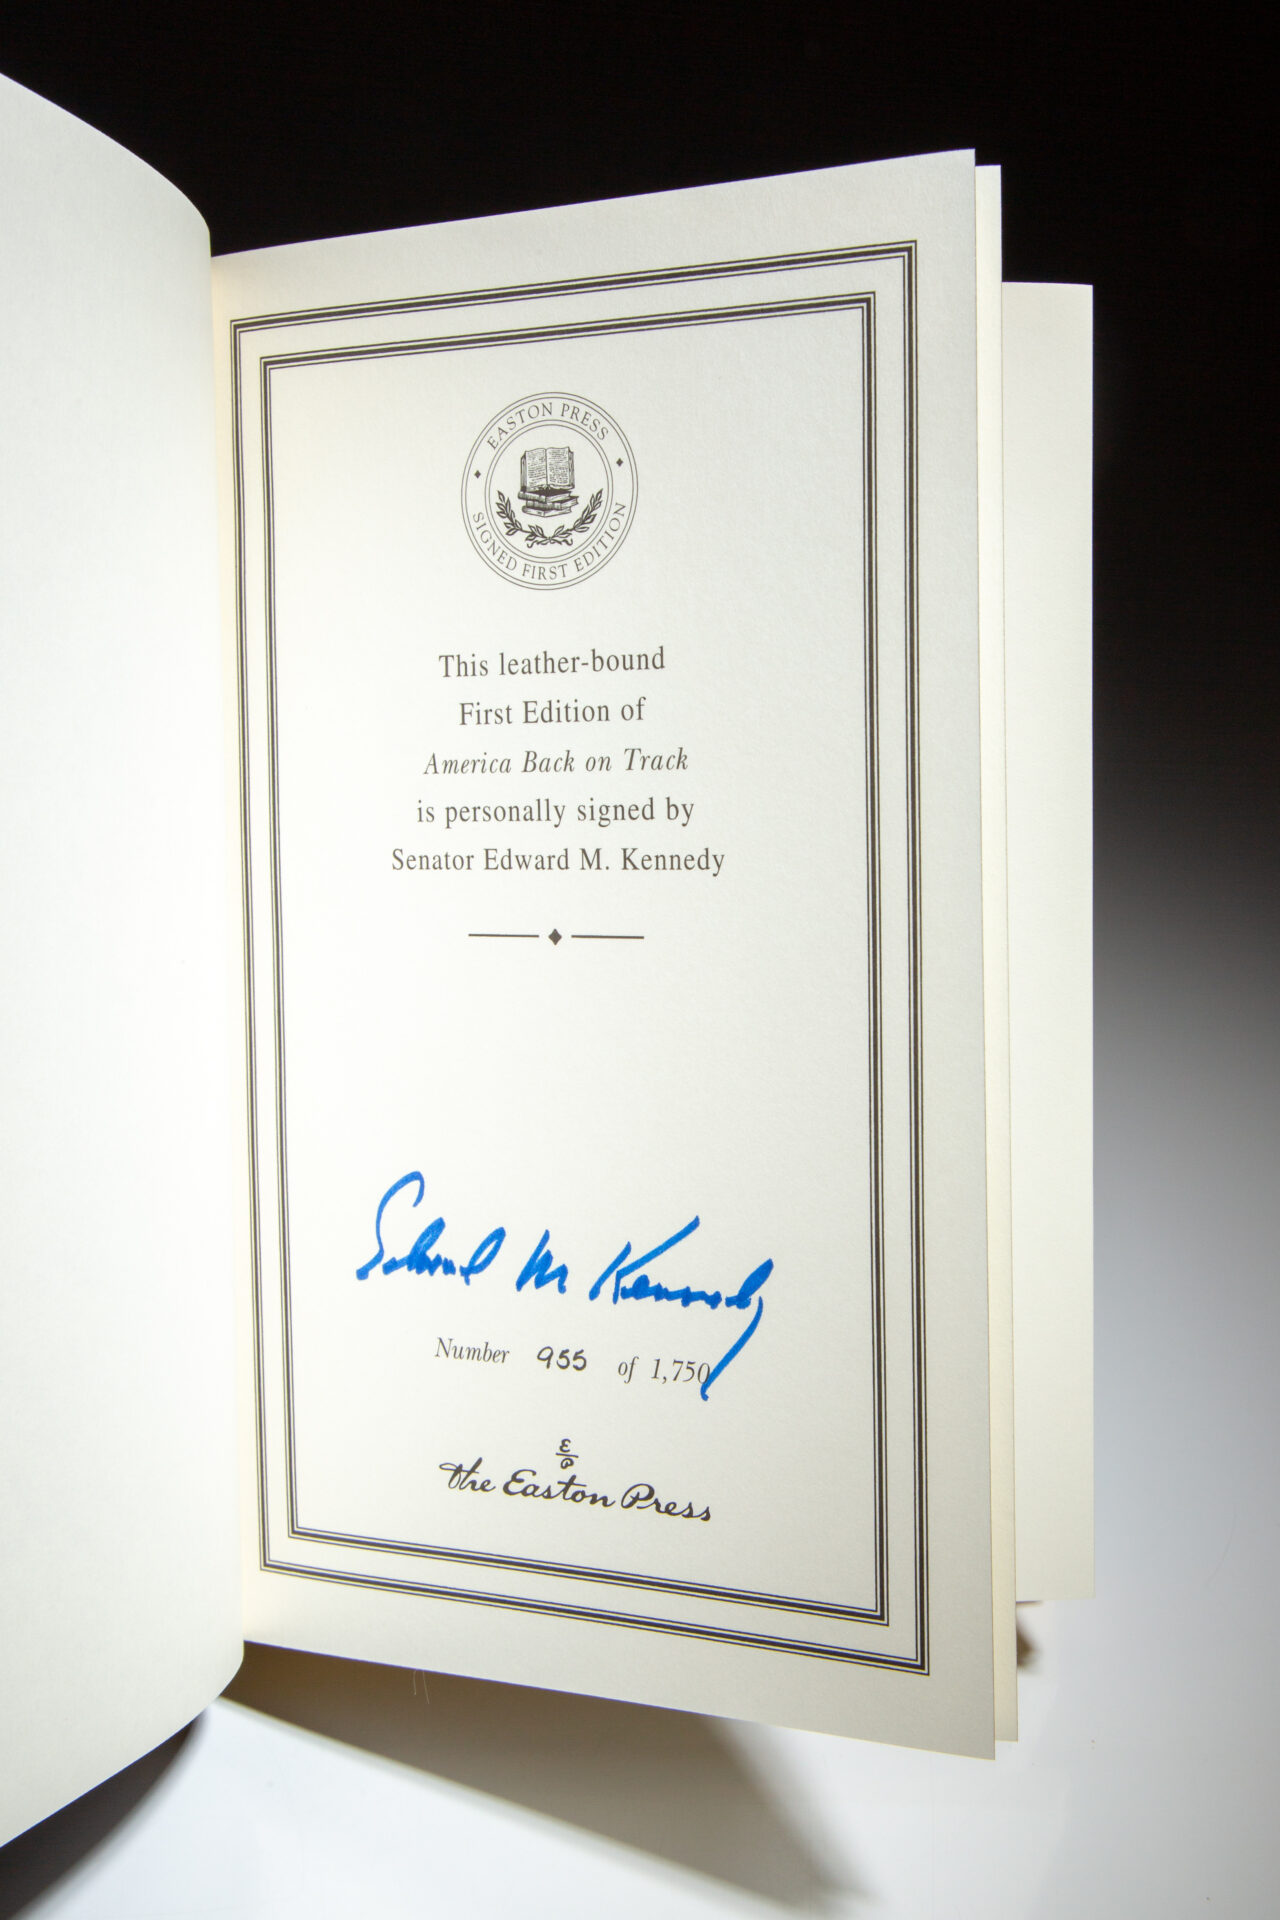 EASTON PRESS
SIGNED FIRST EDITION
This leather-bound
First Edition of
America Back on Track
is personally signed by
Senator Edward M. Kennedy
Edward M Kennedy
Number 955 of 1,750
E
P
The Easton Press